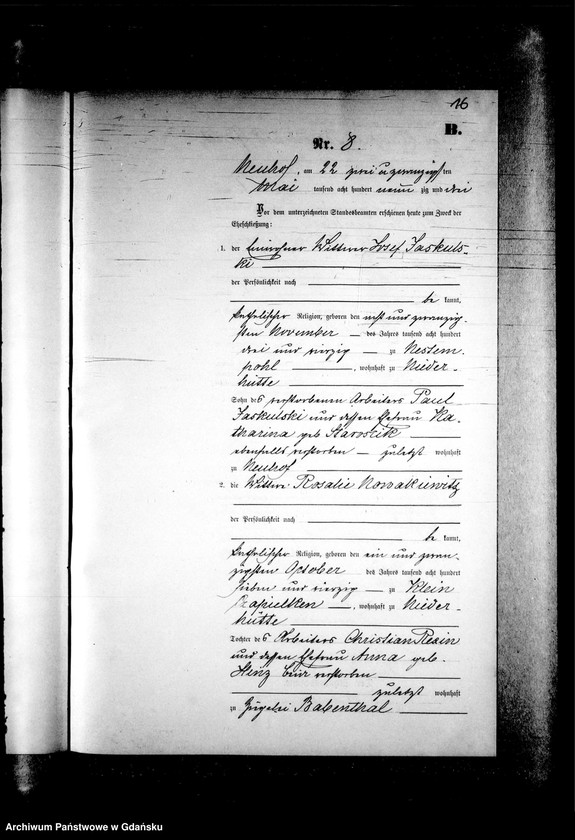 16
B.
Nr. 8.
Neuhof, am 22 zwei u zwanzigsten
Mai tausend acht hundert neunzig und drei
Vor dem unterzeichneten Standesbeamten erschienen heute zum Zweck der
Eheschließung:
1. der Einwohner Wittwer Josef Jaskuls-
ki
der Persönlichkeit nach
be kannt,
katholischer Religion, geboren den
sten November des Jahres tausend acht hundert
drei und vierzig zu Nestem-
pohl, wohnhaft zu Nieder-
hütte
Sohn des verstorbenen Arbeiters Paul
Jaskulski und dessen Ehefrau Ka-
tharina geb Starostik
ebenfalls verstorben zuletzt wohnhaft
zu Neuhof
2. die Wittwe Rosalie Nowakiewitz
der Persönlichkeit nach
be kannt,
katholischer Religion, geboren den ein und zwan-
zigsten October des Jahres tausend acht hundert
sieben und vierzig zu Klein
Czapielken, wohnhaft zu Nieder-
hütte
Tochter des Arbeiters Christian Rexin
und dessen Ehefrau Anna geb.
Henz beide verstorben
zuletzt wohnhaft
zu Babenthal
Archiwum Państwowe w Gdańsku